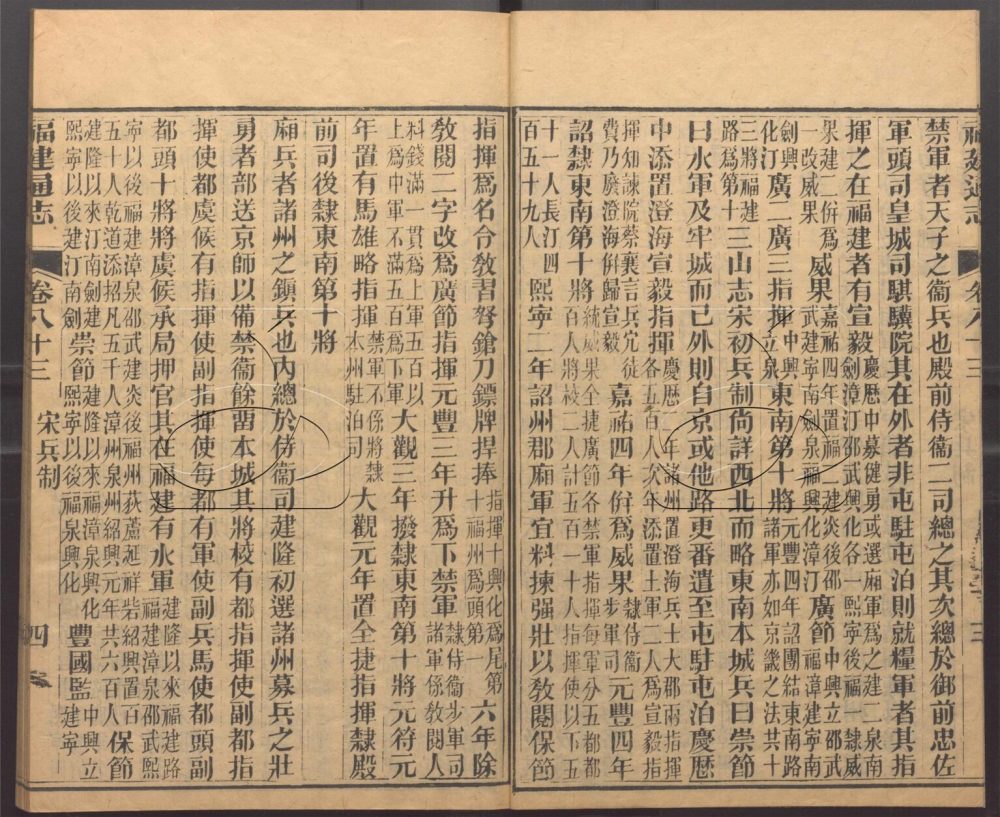 禁軍者天子之衞兵也殿前侍衞二司總之其次總於御前忠佐
軍頭司皇城司騏驥院其在外者非屯駐屯泊則就糧軍者其指
揮之在福建者有宣毅慶歷中募健勇或選廂軍爲之建二泉南劍漳汀邵武興化各一熙寧後興一隸威
果建二併爲一改威果威果嘉祐四年置福一建炎後邵武建寧南劍泉福興化漳汀廣節中興立邵武福漳建寧南
劍興泉化汀廣二廣三指揮中興立泉東南第十將元豐四年詔團結東南路諸軍亦如京畿之法共十
三將福建路爲第十三山志宋初兵制尚詳西北而略東南本城兵曰崇節
曰水軍及牢城而已外則自京或他路更番遣至屯駐屯泊慶歷
中添置澄海宣毅指揮慶歷二年諸州置澄海兵士大郡兩指揮各五百人次年添置土軍一二人爲宣毅指
揮知諫院蔡襄言兵冗徒費乃廢澄海併歸宣毅嘉祐四年併爲威果隸侍衞步軍司元豐四年
詔隸東南第十將統威果全捷廣節各禁軍指揮每軍分五都都百人將校二人計五百一十人指揮使以下五
十一人長汀四百五十九人熙寧二年詔州郡廂軍宜料揀强壯以敎閱保節
指揮爲名合敎習弩鎗刀鏢牌捍捧指揮十興化爲尾第十福州爲頭第一六年除
敎閱二字改爲廣節指揮元豐三年升爲下禁軍隸侍衞步軍司諸軍係敎閱人
料錢滿一貫爲上軍五百以上爲中軍不滿五百爲下軍大觀三年撥隸東南第十將元符元
年置有馬雄略指揮禁軍不係將隸本州駐泊司大觀元年置全捷指揮隸殿
前司後隸東南第十將
廂兵者諸州之鎭兵也内總於侍衞司建隆初選諸州募兵之壯
勇者部送京師以備禁衞餘畱本城其將校有都指揮使副都指
揮使都虞候有指揮使副指揮使每都有軍使副兵馬使都頭副
都頭十將將虞候承局押官其在福建有水軍建隆以來福建路福建漳泉邵武熙
寧以後福建漳泉邵武建炎後福州荻蘆延祥砦紹興置百五十人乾道添招凡五千人漳州泉州紹興元年共六百人保節
建隆以來汀南劍建熙寧以後建汀南劍崇節建隆以來福漳泉興化熙寧以後福泉興化豐國監中興立建寧
福建通志
卷八十三
宋兵制
四